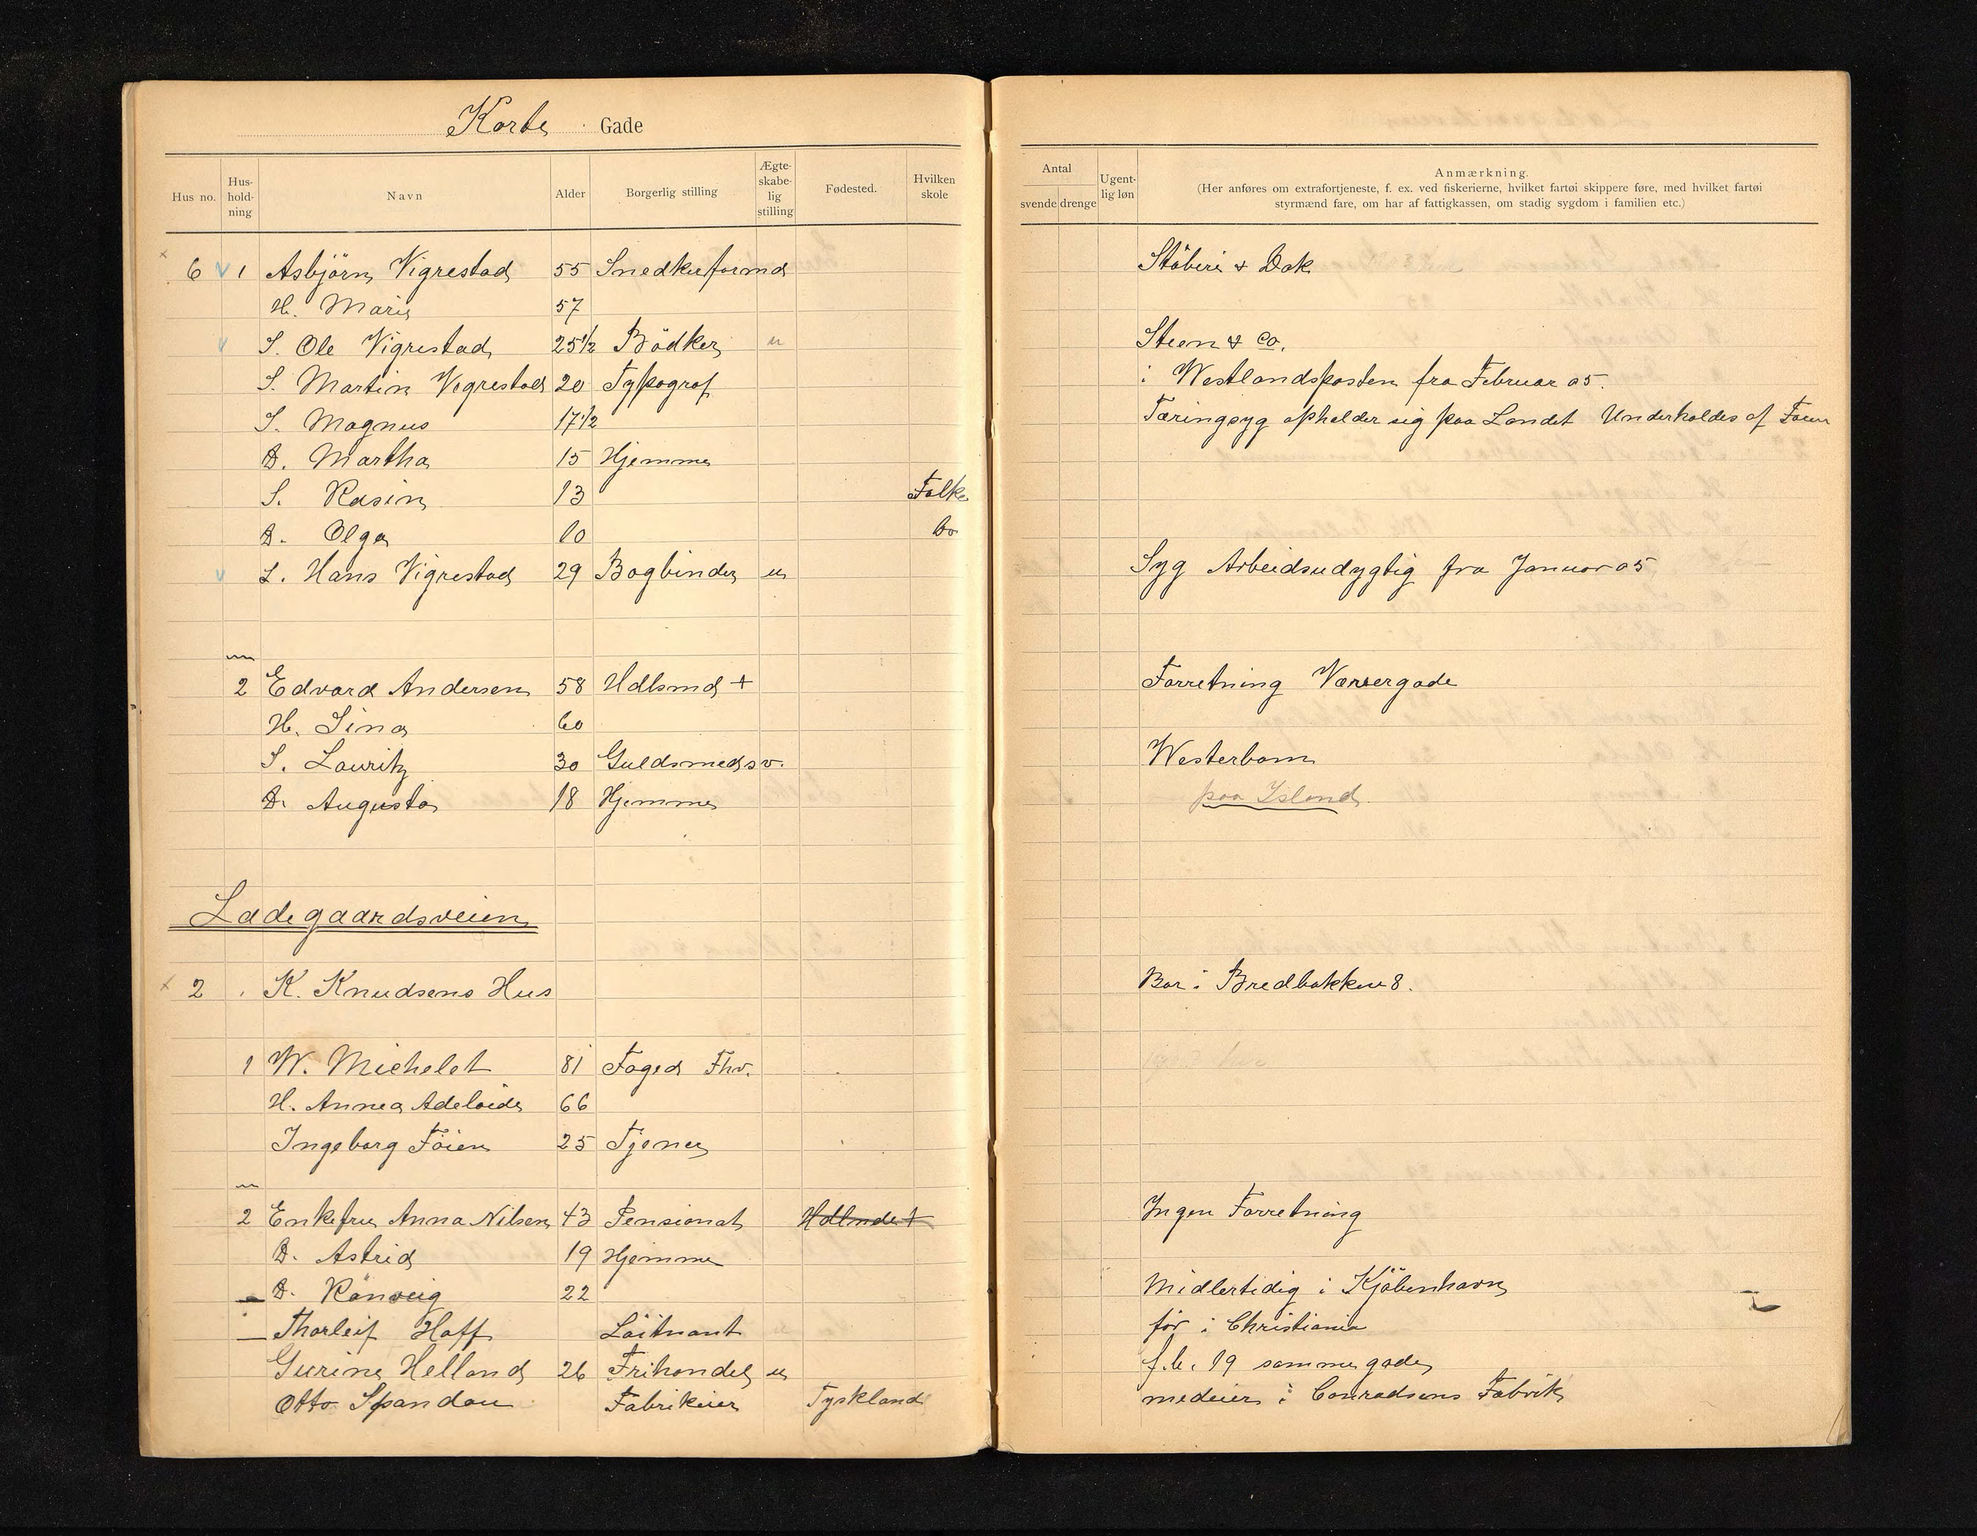 Korte Gade
Hus no. Hus-hold-ning Navn Alder Borgerlig stilling Ægte-skabe-lig stilling Fødested. Hvilken skole Antal svende drenge Ugent-lig løn Anmærkning.
(Her anføres om extrafortjeneste, f. ex. ved fiskerierne, hvilket fartøi skippere føre, med hvilket fartøi
styrmænd fare, om har af fattigkassen, om stadig sygdom i familien etc.)
6 v 1 Asbjörn Vigrestad 55 Snedkerformd Stöberi & Dok
H. Marie 57
v S. Ole Vigrestad 25 1/2 Bödker u Steen & Co.
S. Martin Vigrestad 20 Typograf i Westlandsposten fra Februar 05.
S. Magnus 17 1/2 Tæringsyg opholder sig paa Landet Underholdes af
D. Martha 15 Hjemme
S. Rasin 13 Folke
D. Olga 10 Do
v L. Hans Vigrestad 29 Bogbinder u Syg Arbeidsudygtig fra Januar 05
2 Edvard Andersen 58 Hdlsmd + Forretning Værsergade
H. Sina 60
S. Lauritz 30 Guldsmedsv. Westerbom
D. Augusta 18 Hjemme paa Island
Ladegaardsveien
x 2 K. Knudsens Hus Bor i Bredbakken 8.
1 W. Michelet 81 Foged Fhv.
H. Annea Adelaide 66
Ingeborg Föien 25 Tjener
2 Enkefru Anna Nilsen 43 Pensionat Hdlende + Ingen Forretning
D. Astrid 19 Hjemme
D. Rönveig 22 Midlertidig i Kjöbenhavn
Thorleif Hoff Löitnant för i Christiania
Gurine Helland 26 Frihandel u f.b. 19 samme gade
Otto Spandau Fabrikeier Tyskland medeier i Conradsens Fabrik